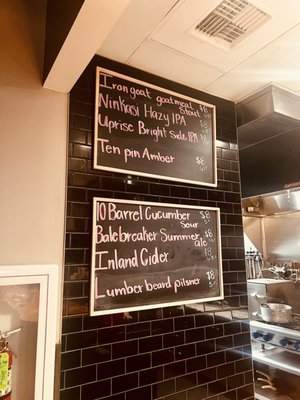 Iron goat goatmeal $8
Stout
Ninkasi Hazy IPA $8
Uprise Bright Side IPA $8
Ten pin Amber $8
10 Barrel Cucumber $8
Sour
Balebreaker Summer $8
ale
Inland Cider $8
Lumberbeard pilsner $8